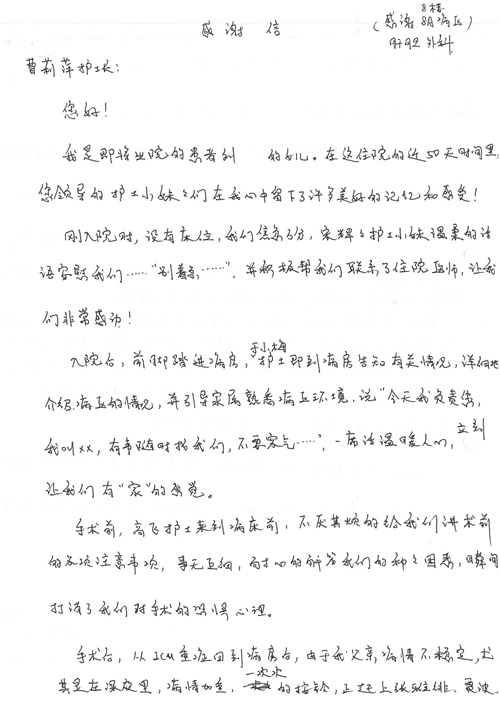 感谢信
8楼
(感谢8A病区
肝胆外科)
曹莉萍护士长:
您好!
我是即将出院的患者刘 的女儿。在这住院的近50天时间里,
您领导的护士小妹妹们在我心中留下了许多美好的记忆和感觉!
刚入院时,没有床位,我们焦急万分,宋辉护士小妹温柔的话
语安慰我们……“别着急……”,并积极帮我们联系了住院医师,让我
们非常感动!
入院后,前脚踏进病房,于小梅护士即到病房告知有关情况,详细地
介绍病区的情况,并引导家属熟悉病区环境,说“今天我负责您,
我叫xx,有事随时找我们,不要客气……”,一席话温暖人心,立刻
让我们有“家”的感觉。
手术前,高飞护士来到病床前,不厌其烦的给我们讲术前
的各项注意事项,事无巨细,耐心的解答我们的种种因惑,瞬间
打消了我们对手术的恐惧心理。
手术后,从ICU重症回到病房后,由于我父亲病情不稳定,尤
其是在深夜里,病情加重,一次次的按铃,